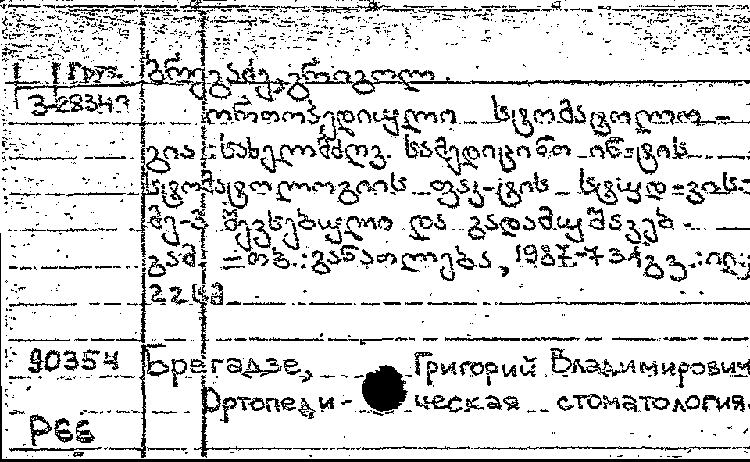 Груз. ბრეგაძე, გრიგოლ.
3-28347
ორთოპედიული სტომატოლო-
გია : სახელმძღვ. სამედიცინო ინ-ტის
სტომატოლოგიის ფაკ-ტის სტუდ-ვის.-
მე-2 შევსებული და გადამუშავებ.
გამ. - თბ. : განათლება, 1987.-731გვ.:ილ.;
22სმ
90354 Брегадзе, Григорий Владимирович
Ортопеди- ческая стоматология.
Р66